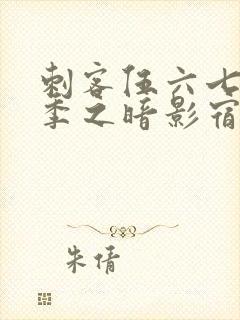 刺客伍六七
季之暗影宿
朱倩